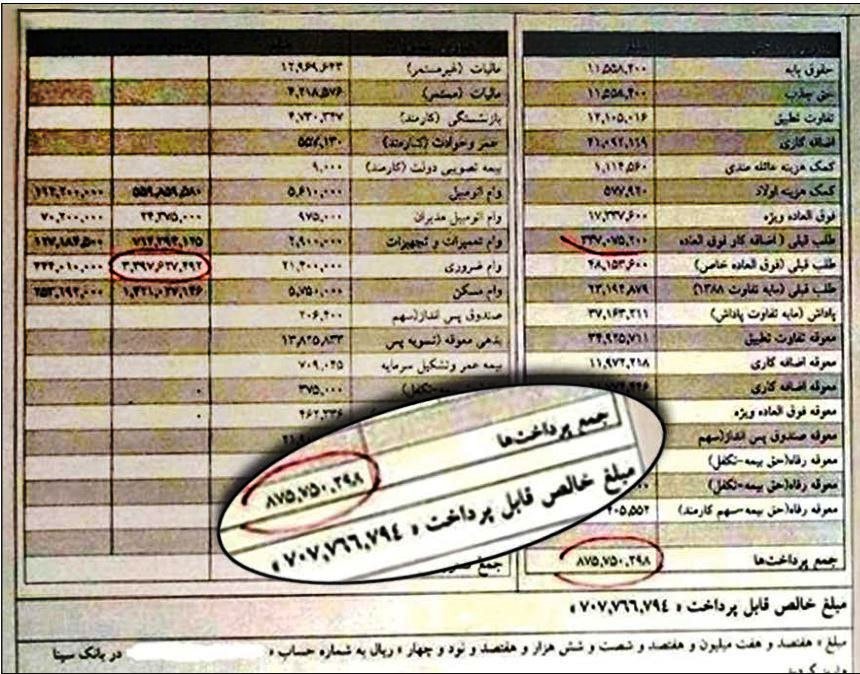 حقوق پایه ۱۱,۵۵۸,۲۰۰
حق جذب ۱۱,۵۵۸,۲۰۰
تفاوت تطبیق ۱۲,۱۰۵,۰۱۶
اضافه کاری ۲۱,۰۹۲,۱۱۹
کمک هزینه عائله مندی ۱,۱۱۴,۵۶۰
کمک هزینه اولاد ۵۷۷,۹۲۰
فوق العاده ویژه ۱۷,۳۳۷,۶۰۰
طلب قبلی ( اضافه کار فوق العاده ۳۴۷,۰۷۵,۲۰۰
طلب قبلی (فوق العاده خاص) ۴۸,۱۵۳,۶۰۰
طلب قبلی (مابه تفاوت ۱۳۸۸) ۲۳,۱۹۲,۸۷۹
پاداش (مابه تفاوت پاداش) ۳۷,۱۶۳,۲۱۱
معوقه تفاوت تطبیق ۳۴,۹۲۵,۷۱۱
معوقه اضافه کاری ۱۱,۹۷۲,۲۱۸
معوقه اضافه کاری
معوقه فوق العاده ویژه
معوقه صندوق پس انداز(سهم
معوقه رفاه(حق بیمه-تکفل)
معوقه رفاه(حق بیمه-تکفل)
معوقه رفاه(حق بیمه-سهم کارمند) ۴۰۵,۵۵۲
جمع پرداخت‌ها ۸۷۵,۷۵۰,۲۹۸
مالیات (غیرمستمر) ۱۲,۹۶۹,۶۴۳
مالیات (مستمر) ۴,۲۱۸,۵۷۶
بازنشستگی (کارمند) ۴,۷۳۰,۳۴۷
عمر و حوادث (کارمند) ۵۵۷,۱۳۰
بیمه تصویبی دولت (کارمند) ۹,۰۰۰
وام اتومبیل ۵,۶۱۰,۰۰۰ ۵۵۹,۸۵۹,۵۸۰ ۱۹۲,۲۰۰,۰۰۰
وام اتومبیل مدیران ۹۷۵,۰۰۰ ۲۴,۳۷۵,۰۰۰ ۷۰,۲۰۰,۰۰۰
وام تعمیرات و تجهیزات ۲,۹۰۰,۰۰۰ ۷۱۴,۲۹۴,۱۲۵ ۱۲۷,۱۸۴,۵۰۰
وام ضروری ۲۱,۴۰۰,۰۰۰ ۳,۳۹۷,۶۳۷,۴۹۲ ۲۴۴,۰۱۰,۰۰۰
وام مسکن ۵,۷۵۰,۰۰۰ ۱,۴۲۱,۰۳۷,۱۴۶ ۲۵۳,۱۹۲,۰۰۰
صندوق پس انداز(سهم ۲۰۶,۴۰۰
بدهی معوقه (تسویه پس ۱۳,۸۲۵,۸۳۳
بیمه عمر وتشکیل سرمایه ۷۰۹,۰۴۵
۳۷۵,۰۰۰ ۰
۴۶۲,۳۳۶ ۰
جمع پرداخت‌ها
۸۷۵,۷۵۰,۲۹۸
مبلغ خالص قابل پرداخت « ۷۰۷,۷۶۶,۷۹۴ »
مبلغ خالص قابل پرداخت « ۷۰۷,۷۶۶,۷۹۴ »
مبلغ « هفتصد و هفت میلیون و هفتصد و شصت و شش هزار و هفتصد و نود و چهار » ریال به شماره حساب « در بانک سینا